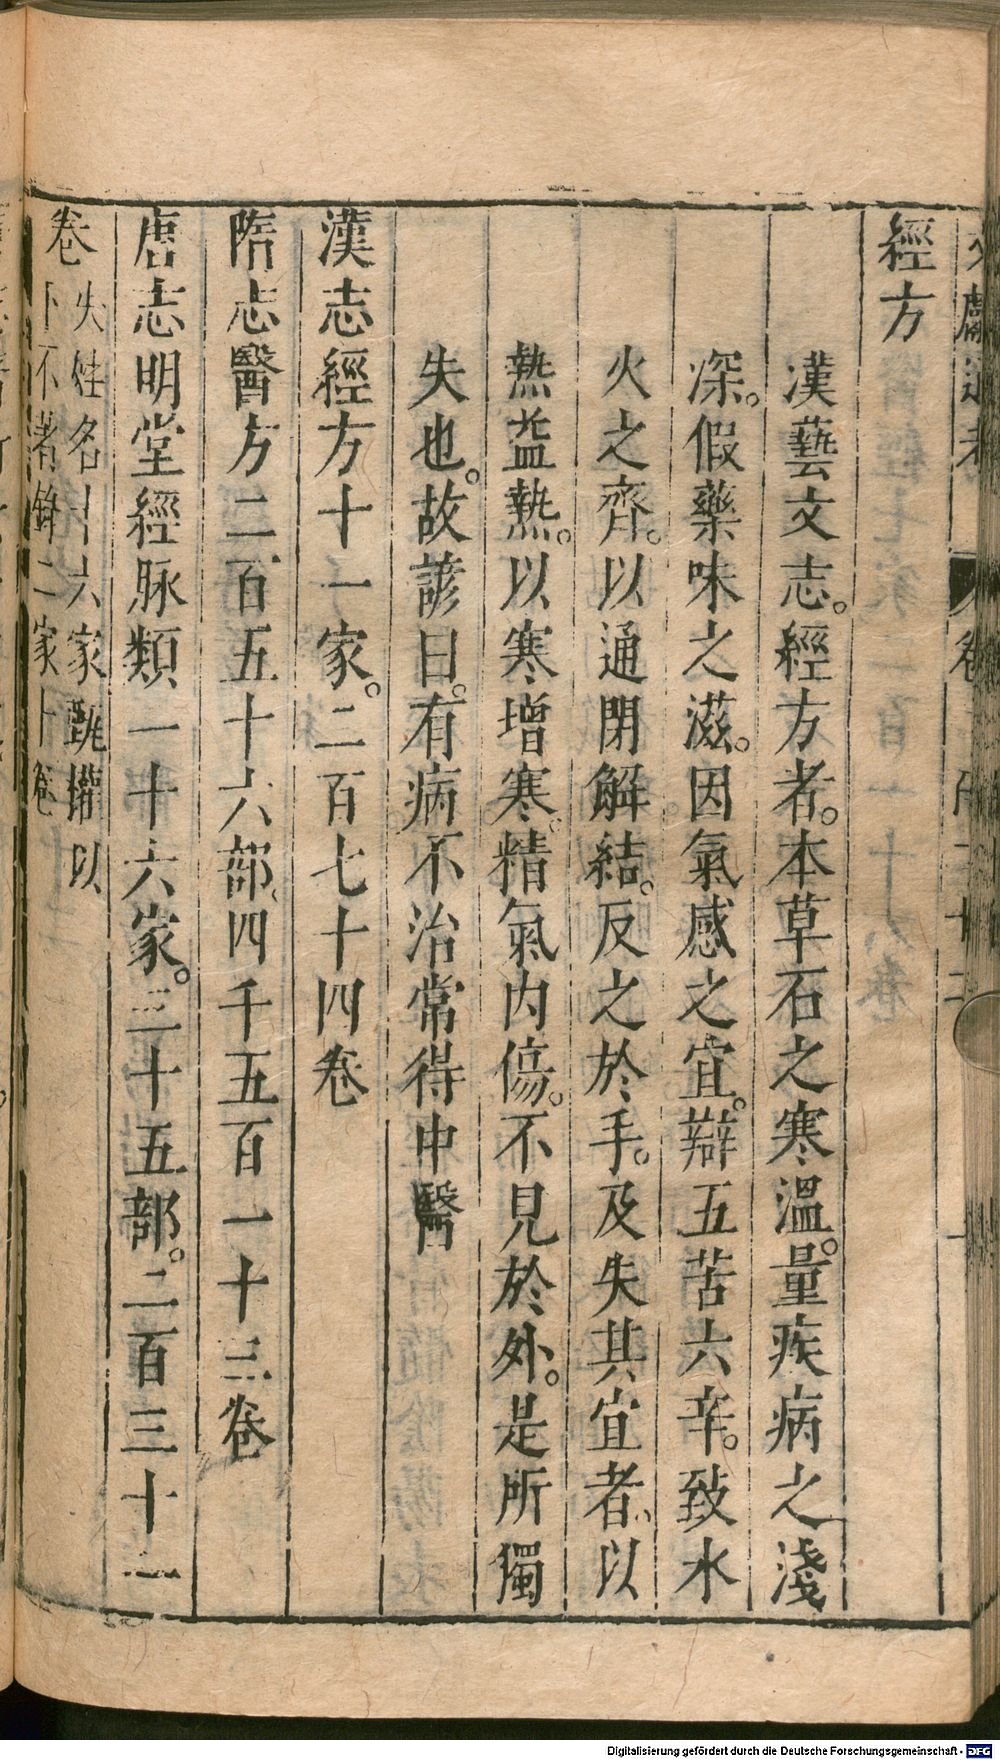 經方
漢藝文志。經方者。本草石之寒溫。量疾病之淺
深。假藥味之滋。因氣感之宜。辯五苦六辛。致水
火之齊。以通閉解結。反之於手。及失其宜者、以
熱益熱。以寒增寒。精氣內傷。不見於外。是所獨
失也。故諺曰。有病不治常得中醫
漢志經方十一家。二百七十四卷
隋志醫方二百五十六部。四千五百一十三卷
唐志明堂經脉類一十六家。三十五部。二百三十一
卷
失姓名十六家甄權以
下不著錄二家卜卷
Digitalisierung gefördert durch die Deutsche Forschungsgemeinschaft - DFG